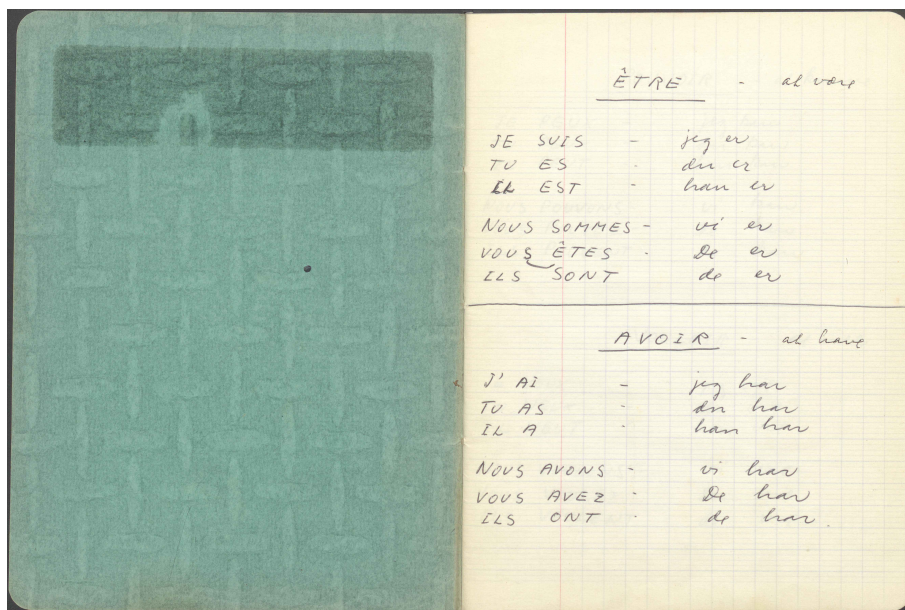 ÊTRE - at være
JE SUIS - jeg er
TU ES - du er
IL EST - han er
NOUS SOMMES - vi er
VOUS ÊTES - De er
ILS SONT - de er
AVOIR - at have
J'AI - jeg har
TU AS - du har
IL A - han har
NOUS AVONS - vi har
VOUS AVEZ - De har
ILS ONT - de har